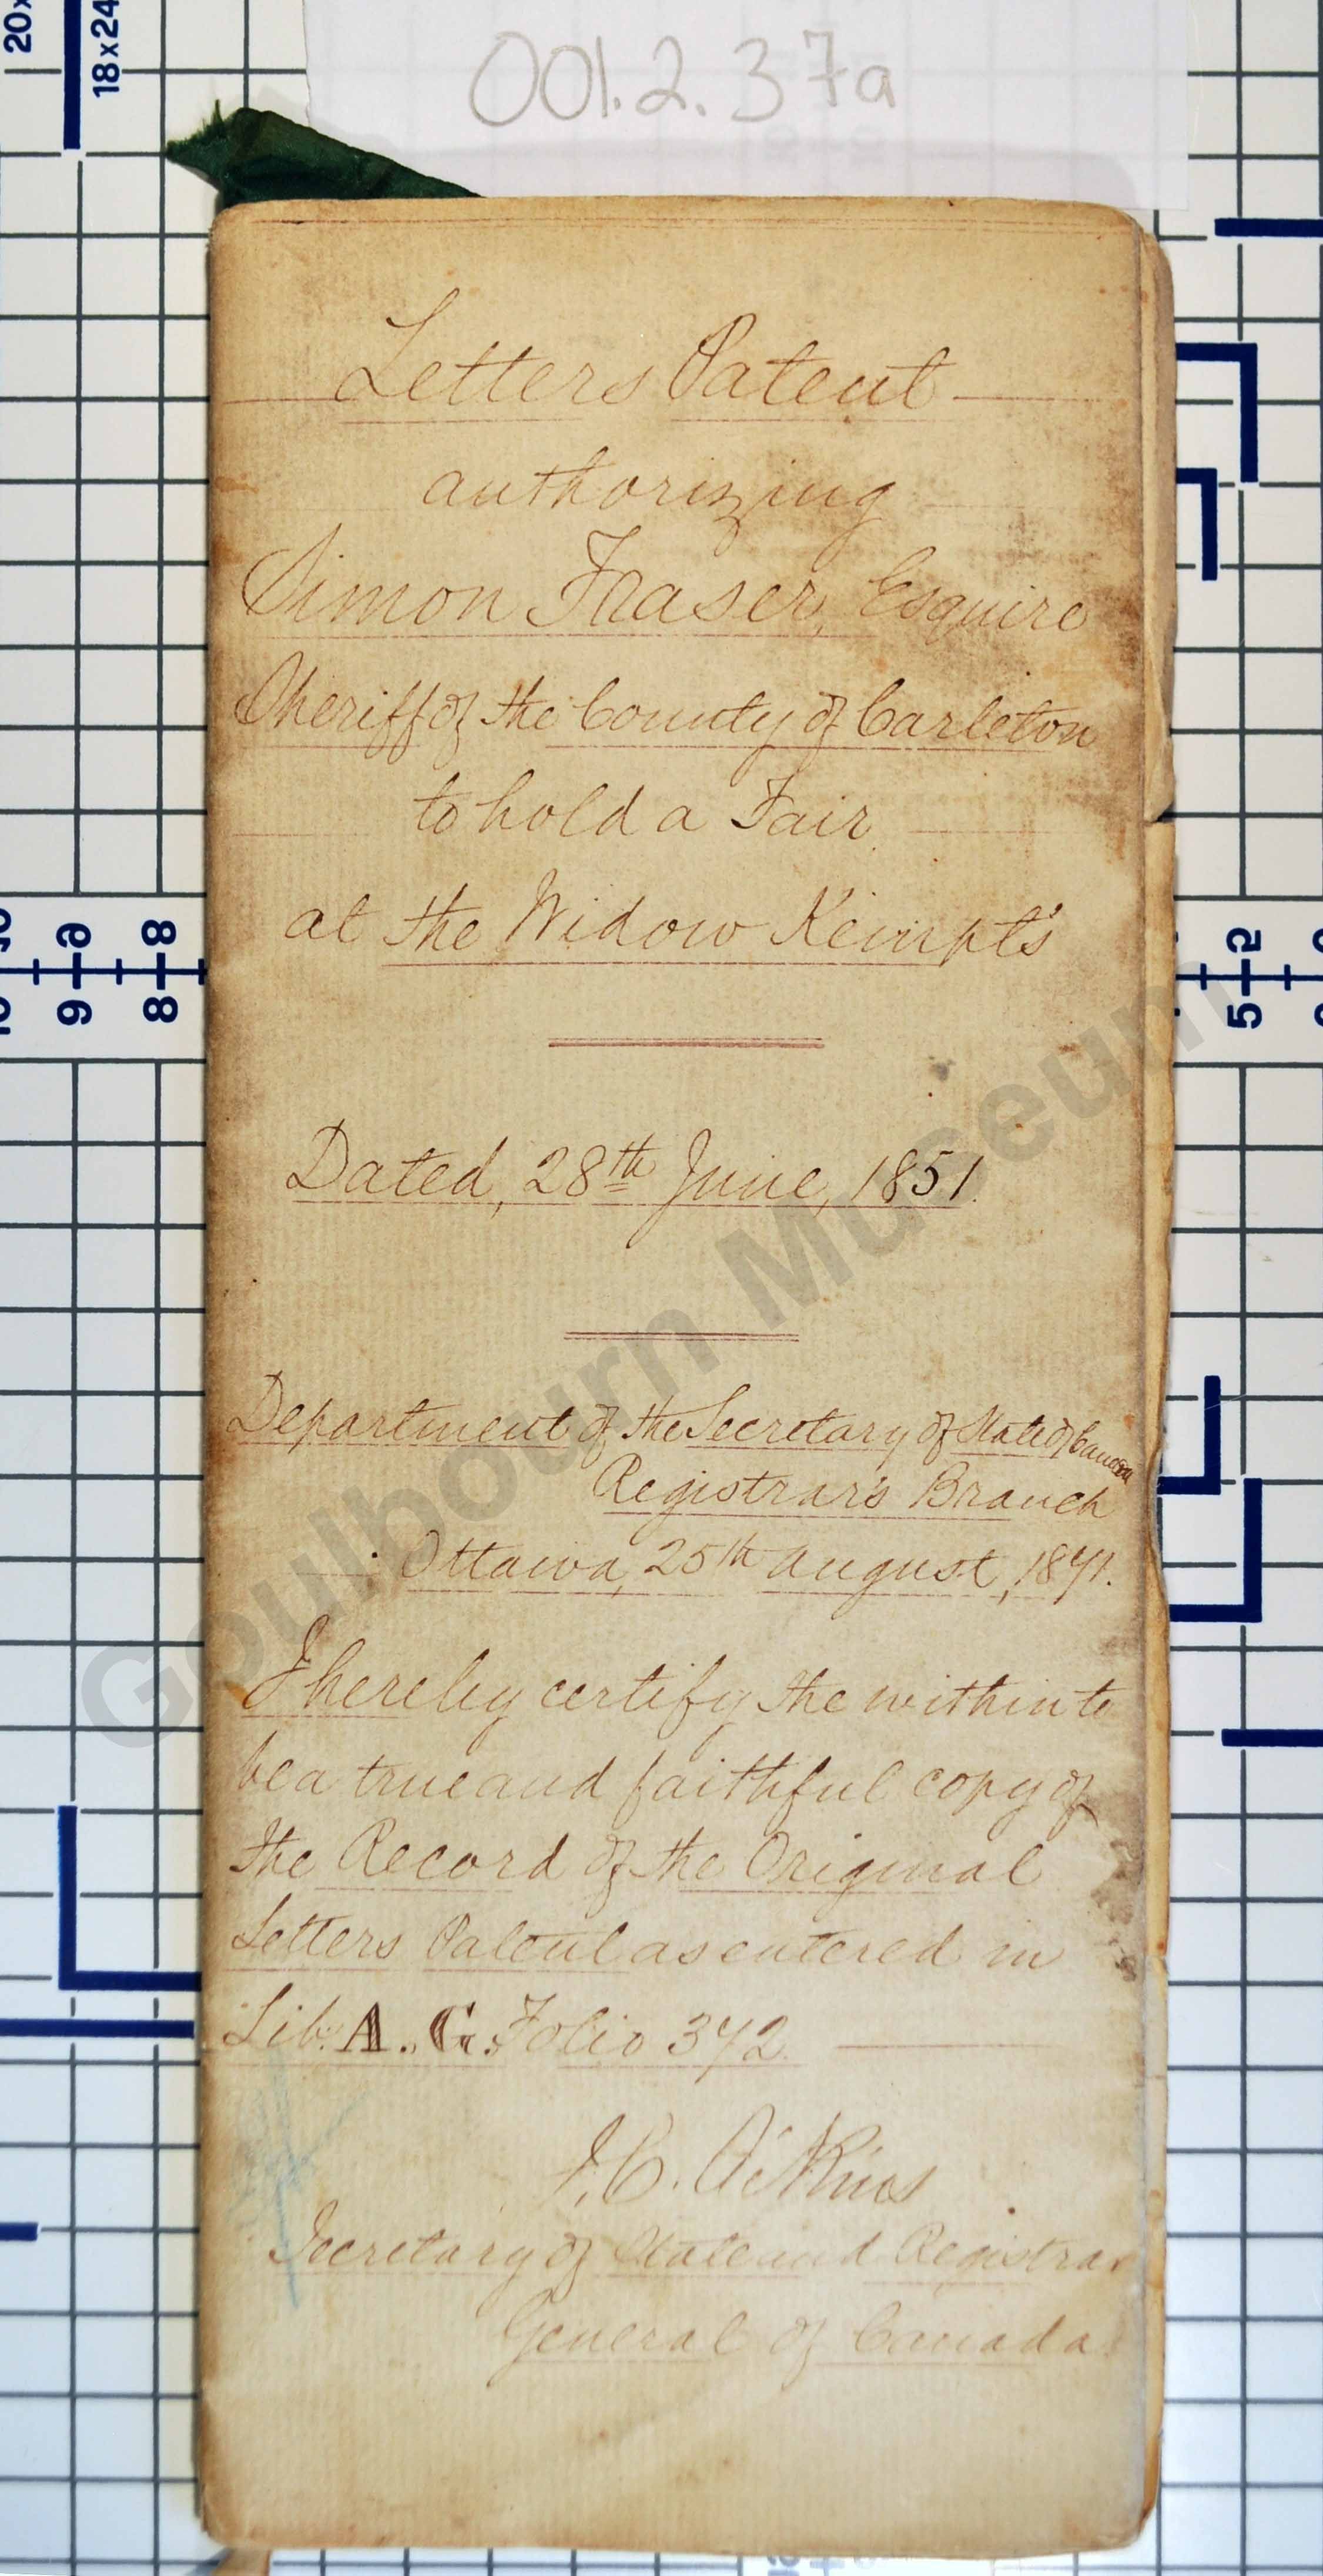 20x
18x24
001.2.37a
Letters Patent
authorizing
Simon Fraser, Esquire
Sheriff of the County of Carleton
to hold a Fair
at the Widow Kempt's
Dated, 28th June, 1851.
Department of the Secretary of State of Canada
Registrar's Branch
Ottawa, 25th August, 1871.
I hereby certify the within to
be a true and faithful copy of
the Record of the Original
Letters Patent as entered in
Lib. A. G. Folio 372.
J. C. Aikins
Secretary of State and Registrar
General of Canada.
9 8
9 8
5
5
Goulbourn Museum